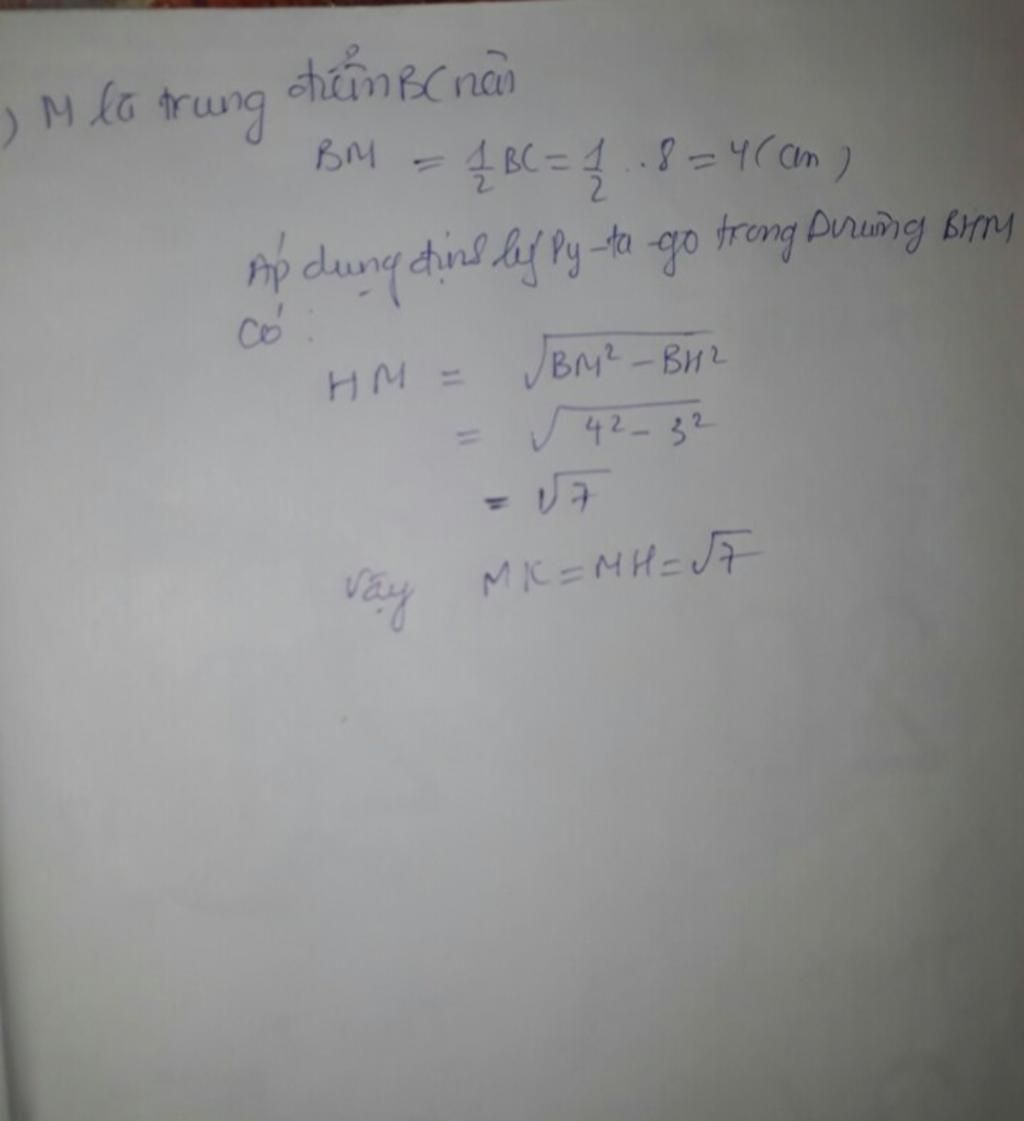 ) M là trung điểm BC nên
BM = 1/2 BC = 1/2 . 8 = 4 (cm)
Áp dụng định lý Py-ta-go trong Δvuông BHM
có :
HM = √(BM² - BH²)
= √(4² - 3²)
= √7
Vậy MK = MH = √7